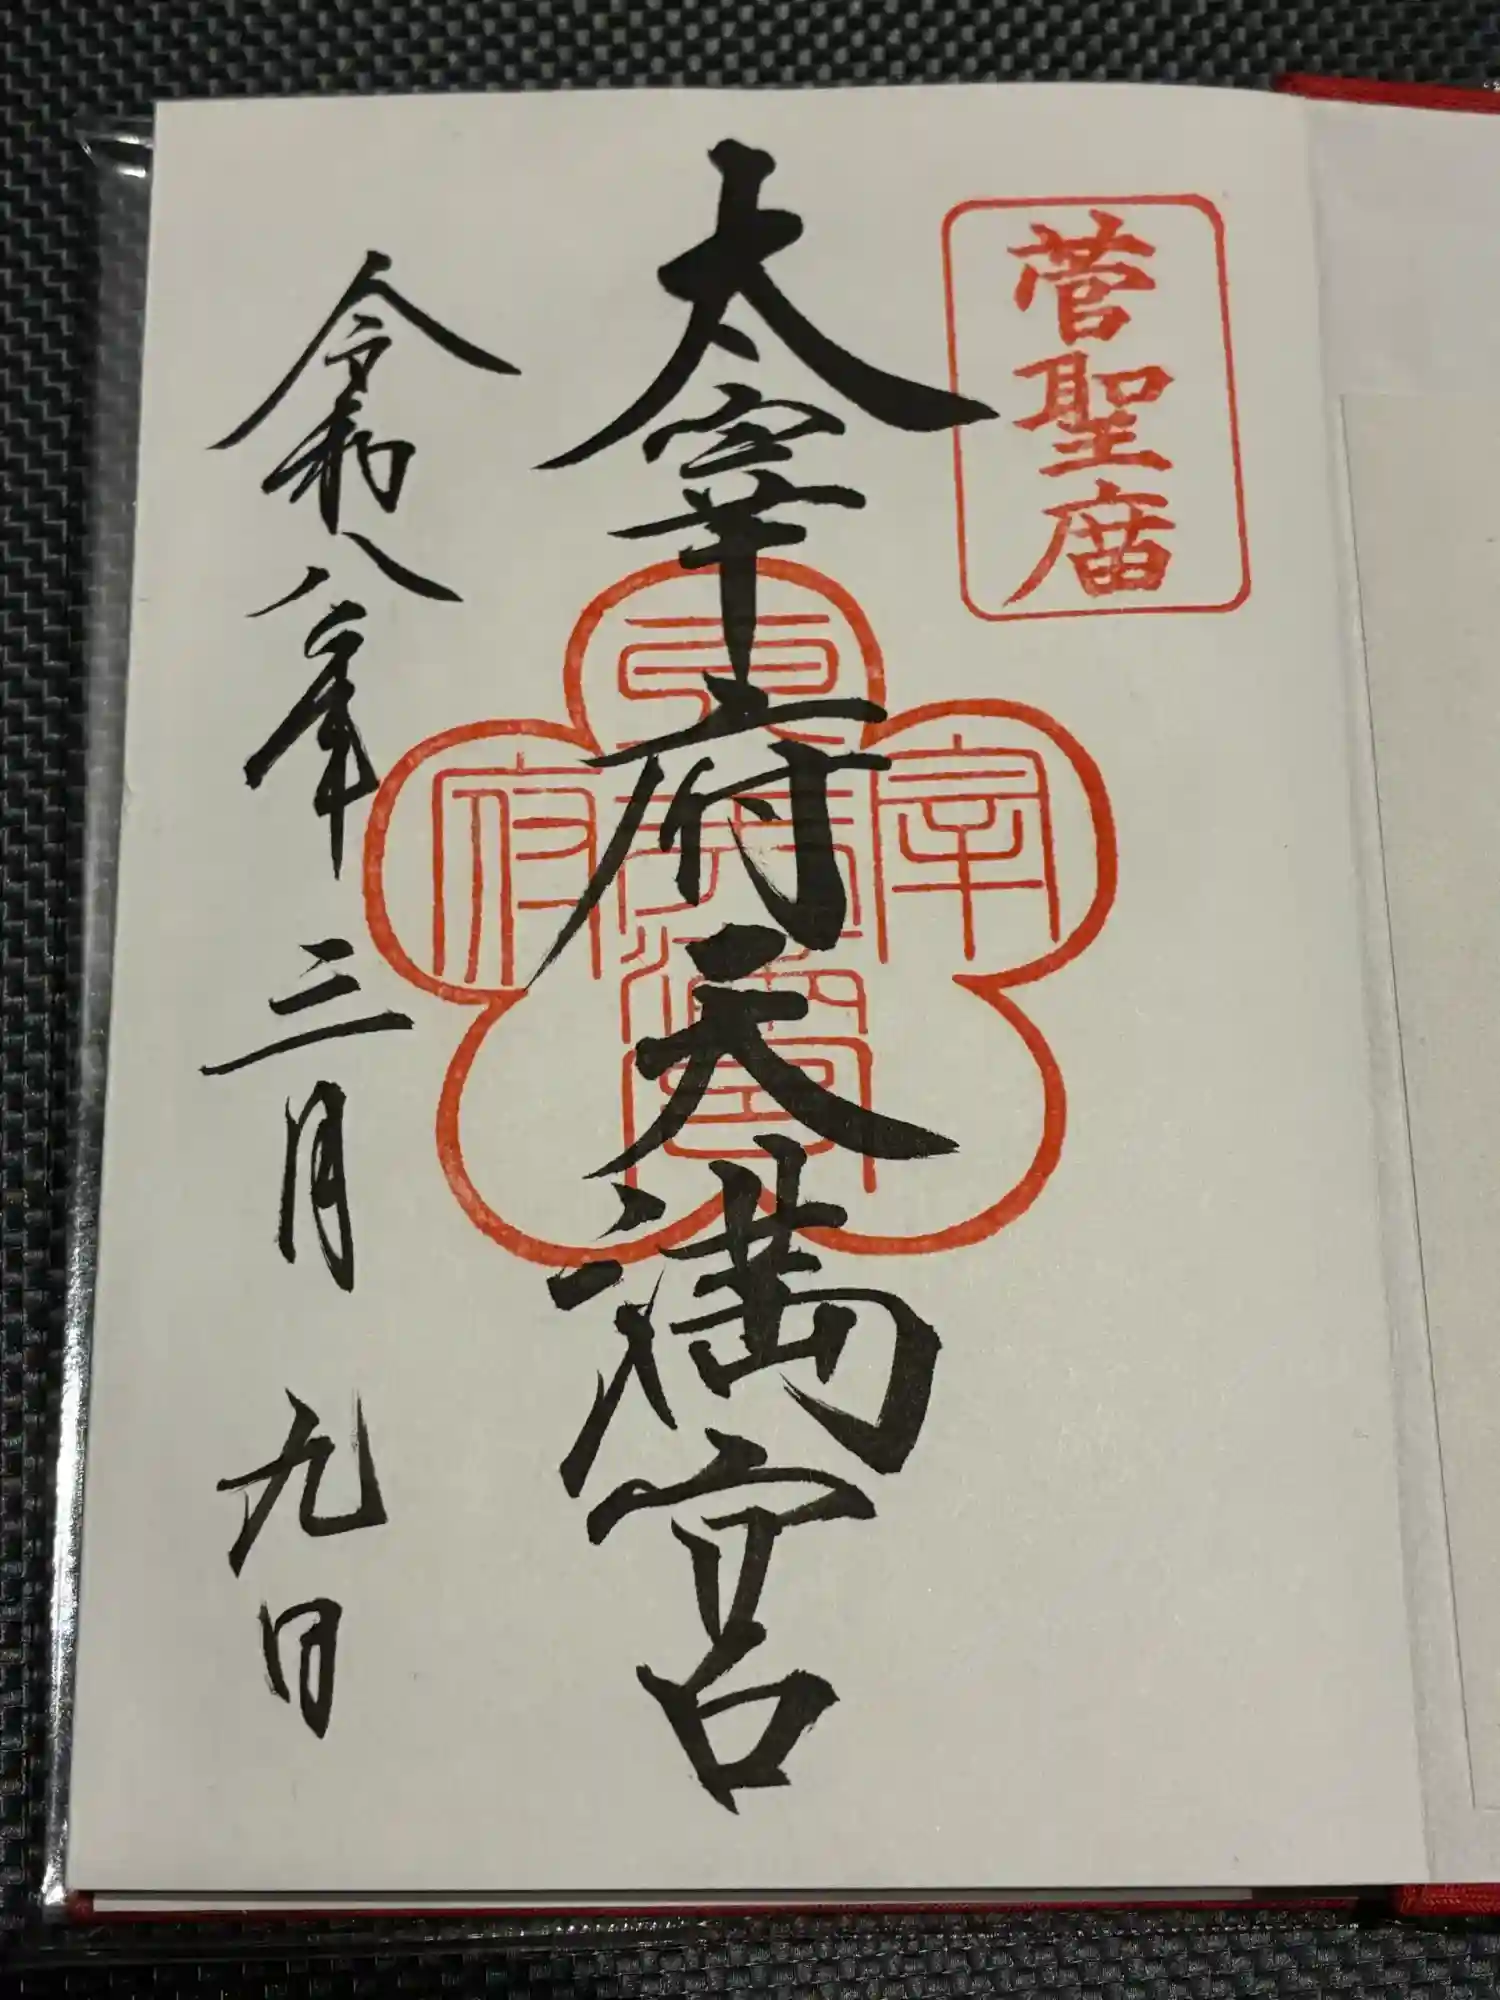 菅聖庿
太宰府天満宮
太宰府天満宮
令和八年三月九日